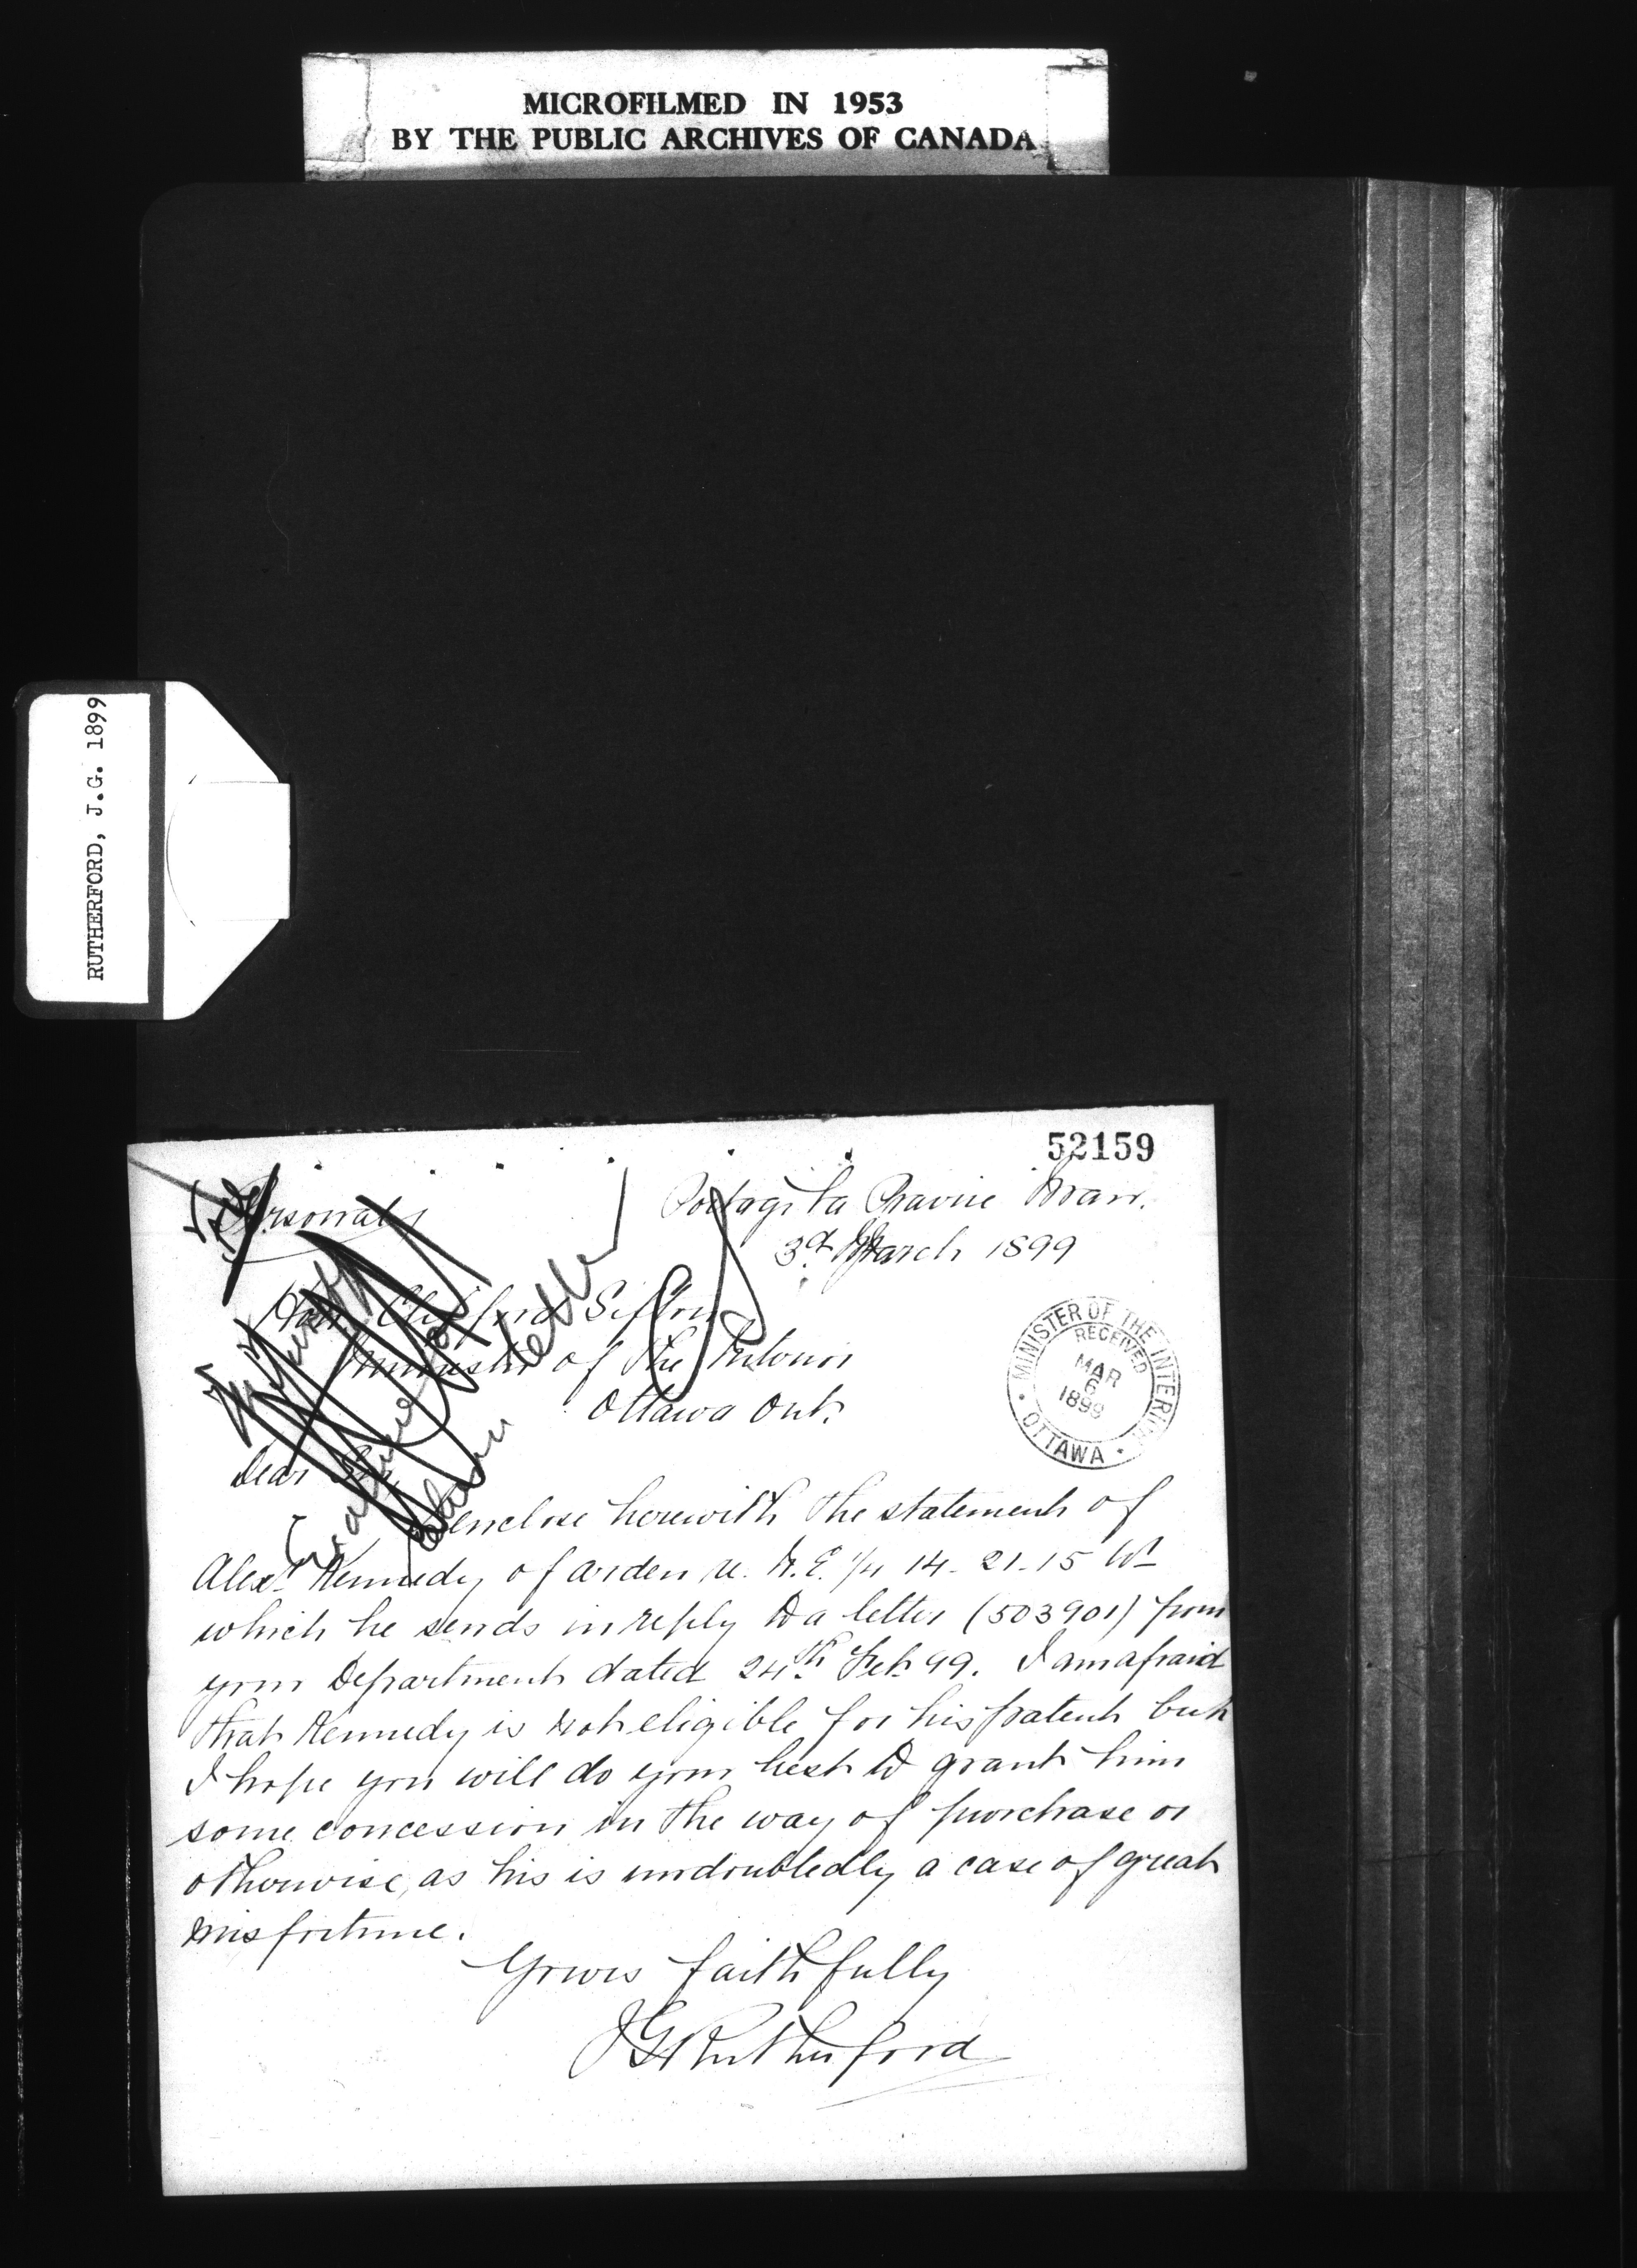 MICROFILMED IN 1953
BY THE PUBLIC ARCHIVES OF CANADA
RUTHERFORD, J.G. 1899
52159
Personal
Portage la Prairie Man.
3d March 1899
Hon. Clifford Sifton
Minister of the Interior
Ottawa Ont.
MINISTER OF THE INTERIOR
RECEIVED
MAR
6
1899
OTTAWA
Dear Sir,
I enclose herewith the statement of
Alexr Kennedy of Arden re. N.E. 1/4 14-21-15 W1
which he sends in reply to a letter (503901) from
your Department dated 24th Feb 99. I am afraid
that Kennedy is not eligible for his patent but
I hope you will do your best to grant him
some concession in the way of purchase or
otherwise, as his is undoubtedly a case of great
misfortune.
Yours faithfully
JGRutherford